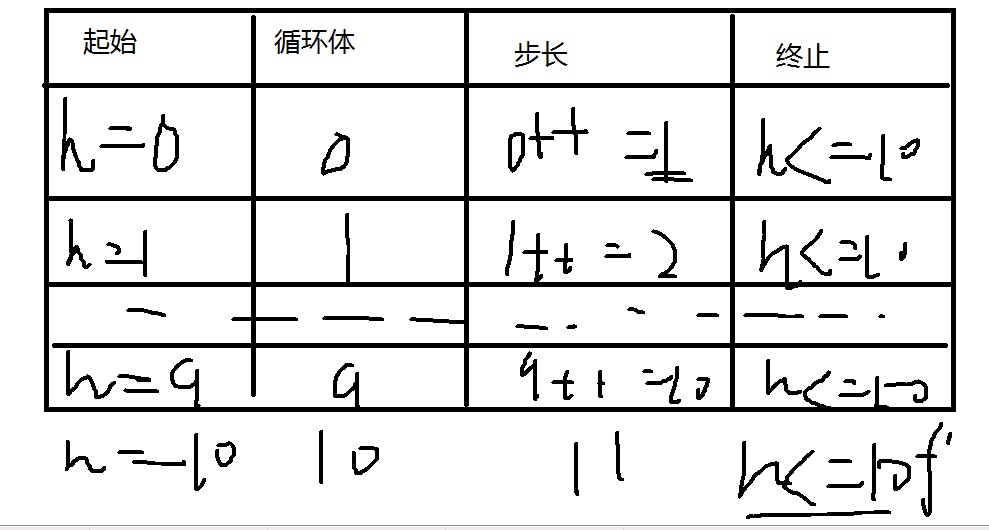 起始 循环体 步长 终止
h=0 0 0++ =1 h<=10
h=1 1 1++ = 2 h<=10
h=9 9 9++ =10 h<=10
h=10 10 11 h<=10f